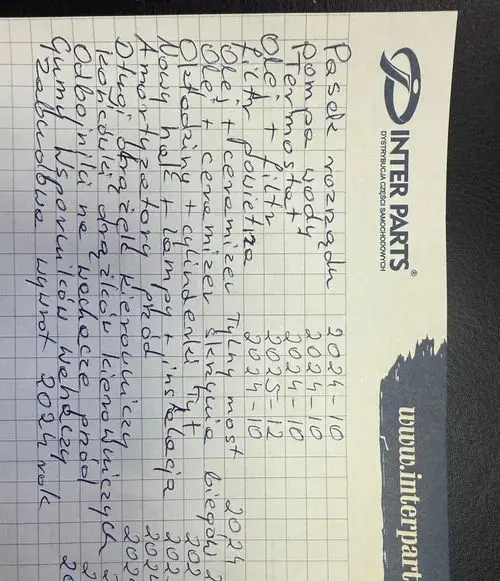 INTER PARTS®
DYSTRYBUCJA CZĘŚCI SAMOCHODOWYCH
www.interpart
Pasek rozrządu 2024-10
Pompa wody 2024-10
Termostat 2024-10
Olej + filtr 2025-12
filtr powietrza 2024-10
Olej + ceramizer Tylny most 2024
Olej + ceramizer skrzynia biegów 2
Okładziny + cylinderki Tył 202
Nowy hak + lampy + instalacja 202
Amortyzatory przód 2024
Długi drążek kierowniczy 2024
Końcówki drążków kierowniczych 2
Odbojniki na wachacze przód 2
Gumy wsporników wahaczy 20
Zabudowa wywrot 2024 rok